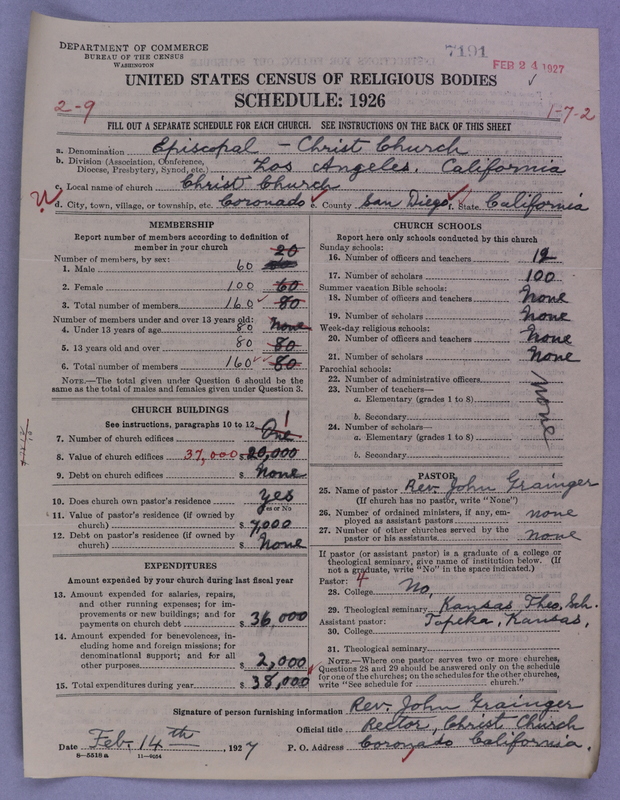 DEPARTMENT OF COMMERCE
BUREAU OF THE CENSUS
WASHINGTON
7191
FEB 24 1927
UNITED STATES CENSUS OF RELIGIOUS BODIES
SCHEDULE: 1926
2-9
1-7-2
FILL OUT A SEPARATE SCHEDULE FOR EACH CHURCH. SEE INSTRUCTIONS ON THE BACK OF THIS SHEET
a. Denomination Episcopal - Christ Church
b. Division (Association, Conference, Diocese, Presbytery, Synod, etc.) Los Angeles, California
c. Local name of church Christ Church
d. City, town, village, or township, etc. Coronado e. County San Diego f. State California
MEMBERSHIP
Report number of members according to definition of member in your church
Number of members, by sex:
20
1. Male 60
2. Female 100 60
3. Total number of members 160 80
Number of members under and over 13 years old:
4. Under 13 years of age 80 None
5. 13 years old and over 80 80
6. Total number of members 160 80
NOTE.—The total given under Question 6 should be the same as the total of males and females given under Question 3.
CHURCH BUILDINGS
See instructions, paragraphs 10 to 12
1
7. Number of church edifices One
8. Value of church edifices 37,000 $ 20,000
9. Debt on church edifices $ None
10. Does church own pastor's residence Yes
Yes or No
11. Value of pastor's residence (if owned by church) $ 7,000
12. Debt on pastor's residence (if owned by church) $ None
EXPENDITURES
Amount expended by your church during last fiscal year
13. Amount expended for salaries, repairs, and other running expenses; for improvements or new buildings; and for payments on church debt $ 36,000
14. Amount expended for benevolences, including home and foreign missions; for denominational support; and for all other purposes $ 2,000
15. Total expenditures during year $ 38,000
CHURCH SCHOOLS
Report here only schools conducted by this church
Sunday schools:
16. Number of officers and teachers 12
17. Number of scholars 100
Summer vacation Bible schools:
18. Number of officers and teachers None
19. Number of scholars None
Week-day religious schools:
20. Number of officers and teachers None
21. Number of scholars None
Parochial schools:
22. Number of administrative officers
23. Number of teachers—
a. Elementary (grades 1 to 8)
b. Secondary
None
24. Number of scholars—
a. Elementary (grades 1 to 8)
b. Secondary
PASTOR
25. Name of pastor Rev. John Grainger
(If church has no pastor, write "None")
26. Number of ordained ministers, if any, employed as assistant pastors none
27. Number of other churches served by the pastor or his assistants none
If pastor (or assistant pastor) is a graduate of a college or theological seminary, give name of institution below. (If not a graduate, write "No" in the space indicated.)
Pastor: 4
28. College No,
29. Theological seminary Kansas, Theo, Sch.
Assistant pastor: Topeka, Kansas,
30. College
31. Theological seminary
NOTE.—Where one pastor serves two or more churches, Questions 28 and 29 should be answered only on the schedule for one of the churches; on the schedules for the other churches, write "See schedule for church."
Signature of person furnishing information Rev. John Grainger
Official title Rector, Christ Church
Date Feb. 14th, 1927 P. O. Address Coronado California.
8-5518a 11-6654